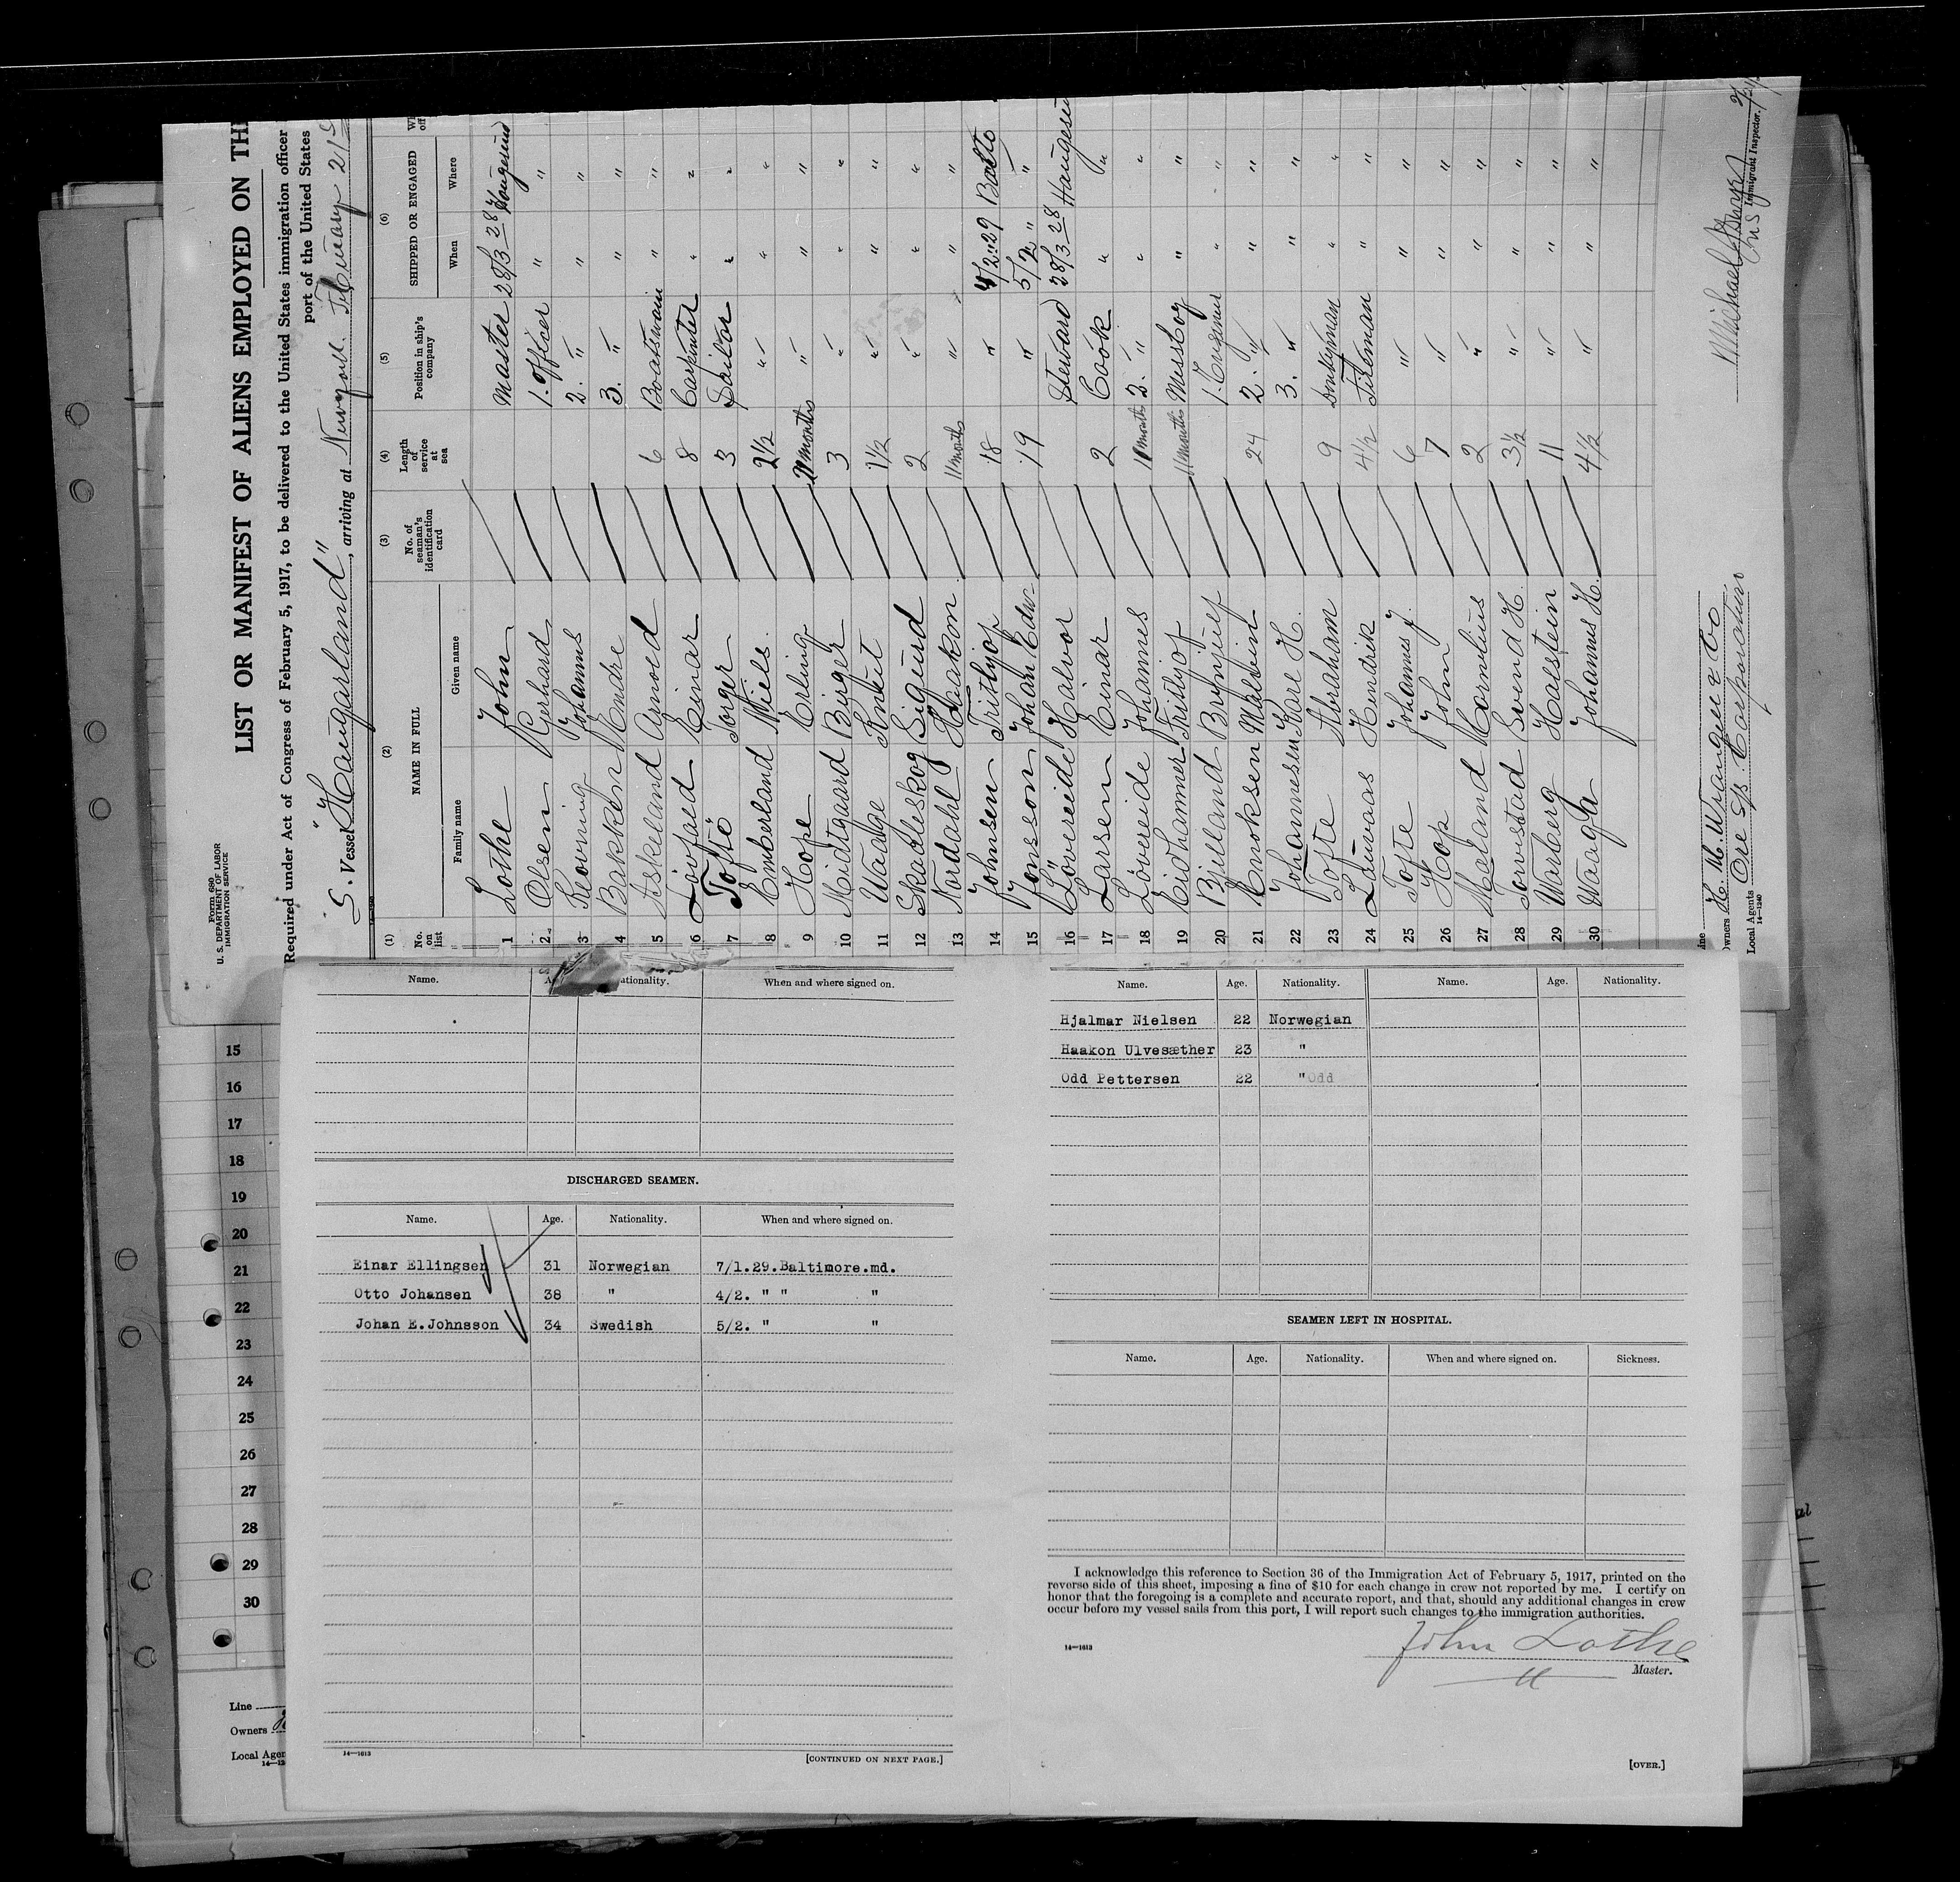 Form 680
U. S. DEPARTMENT OF LABOR
IMMIGRATION SERVICE
LIST OR MANIFEST OF ALIENS EMPLOYED ON TH
Required under Act of Congress of February 5, 1917, to be delivered to the United States immigration officer
port of the United States
S. Vessel "Haugarland", arriving at
(1) (2) (3) (4) (5) (6)
No. on list NAME IN FULL No. of seaman's identification card Length of service at sea Position in ship's company SHIPPED OR ENGAGED
Family name Given name When Where
1 Lothe John Master 28/3 28 Haugesund
2 Olsen Gerhard 1. officer " "
3 Johannes 2. " " "
4 Bakken Endre 3. " " "
5 Askeland Agnoed 6 Boatswain " "
6 Lövfald Einar 8 Carpinter " "
7 Toftö Torger 3 Sailor " "
8 Emberland Niels 2½ " " "
9 Hope Erling months " " "
10 Midtgaard Birger 3 " " "
11 Waage Knut 1½ " " "
12 Skadleskog Sigurd 2 " " "
13 Nordahl Haakon 11 months " " "
14 Johnsen Fristhjof 18 " 4/2 29 Balto
15 Jonsson Johan Edw. 19 " 5/2 " "
16 Lövereide Halvor Steward 28/3 28 Haugesu
17 Larsen Einar 2 Cook " "
18 Lövereide Johannes months 2. " " "
19 Eidhammer Fristhjof 11 months Messboy " "
20 Bjelland Brynjulf 1. " "
21 Enoksen Malvin 24 2. " " "
22 Johannesen Karl H. 3. " " "
23 Tofte Abraham 9 Donkeyman " "
24 Lauvaas Hendrik 4½ Fireman " "
25 Tofte Johannes J. 6 " " "
26 Hop John 7 " " "
27 Mæland Kornelius 2 " " "
28 Torvestad Svend H. 3½ " " "
29 Warberg Halstein 11 " " "
30 Waage Johannes H. 4½ " " "
ine
wners H. M. Wrangell & Co
Local Agents Ore SS. Corporation
14—1240
Michael
Immigrant Inspector.
Name. nationality. When and where signed on.
DISCHARGED SEAMEN.
Name. Age. Nationality. When and where signed on.
Einar Ellingsen 31 Norwegian 7/1.29.Baltimore.md.
Otto Johansen 38 " 4/2. " " "
Johan E.Johnsson 34 Swedish 5/2. " "
14—1613
[CONTINUED ON NEXT PAGE.]
Name. Age. Nationality. Name. Age. Nationality.
Hjalmar Nielsen 22 Norwegian
Haakon Ulvesæther 23 "
Odd Pettersen 22 "Odd
SEAMEN LEFT IN HOSPITAL.
Name. Age. Nationality. When and where signed on. Sickness.
I acknowledge this reference to Section 36 of the Immigration Act of February 5, 1917, printed on the
reverse side of this sheet, imposing a fine of $10 for each change in crew not reported by me. I certify on
honor that the foregoing is a complete and accurate report, and that, should any additional changes in crew
occur before my vessel sails from this port, I will report such changes to the immigration authorities.
14—1613
John Lothe
Master.
[OVER.]
15
16
17
18
19
20
21
22
23
24
25
26
27
28
29
30
Line
Owners
Local Agen